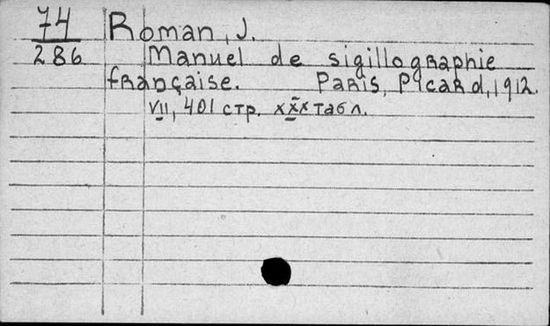 74 Roman, J.
286 Manuel de sigillographie
française. Paris, Picard, 1912.
VII, 401 стр. XXX табл.